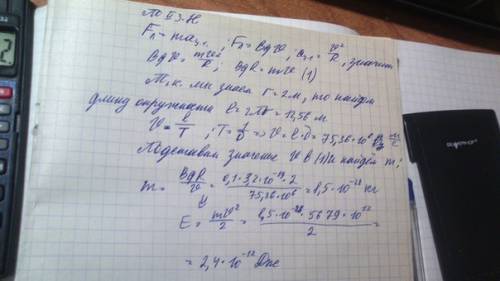 По II з.Н
Fл = maц.с. ; Fл = Bqv ; aц.с = v²/R, значит
Bqv = mv²/R ; BqR = mv (1)
Т.к. мы знаем r = 2м, то найдём
длину окружности l = 2πr = 12,56 м
v = l/T ; T = 1/υ => v = l·υ = 75,36·10⁶ м/с
Подставим значение v в (1) и найдём m:
m = BqR/v = 0,1·3,2·10⁻¹⁹·2/75,36·10⁶ = 8,5·10⁻²⁸ кг
E = mv²/2 = 8,5·10⁻²⁸·5679·10¹²/2 =
= 2,4·10⁻¹² Дж